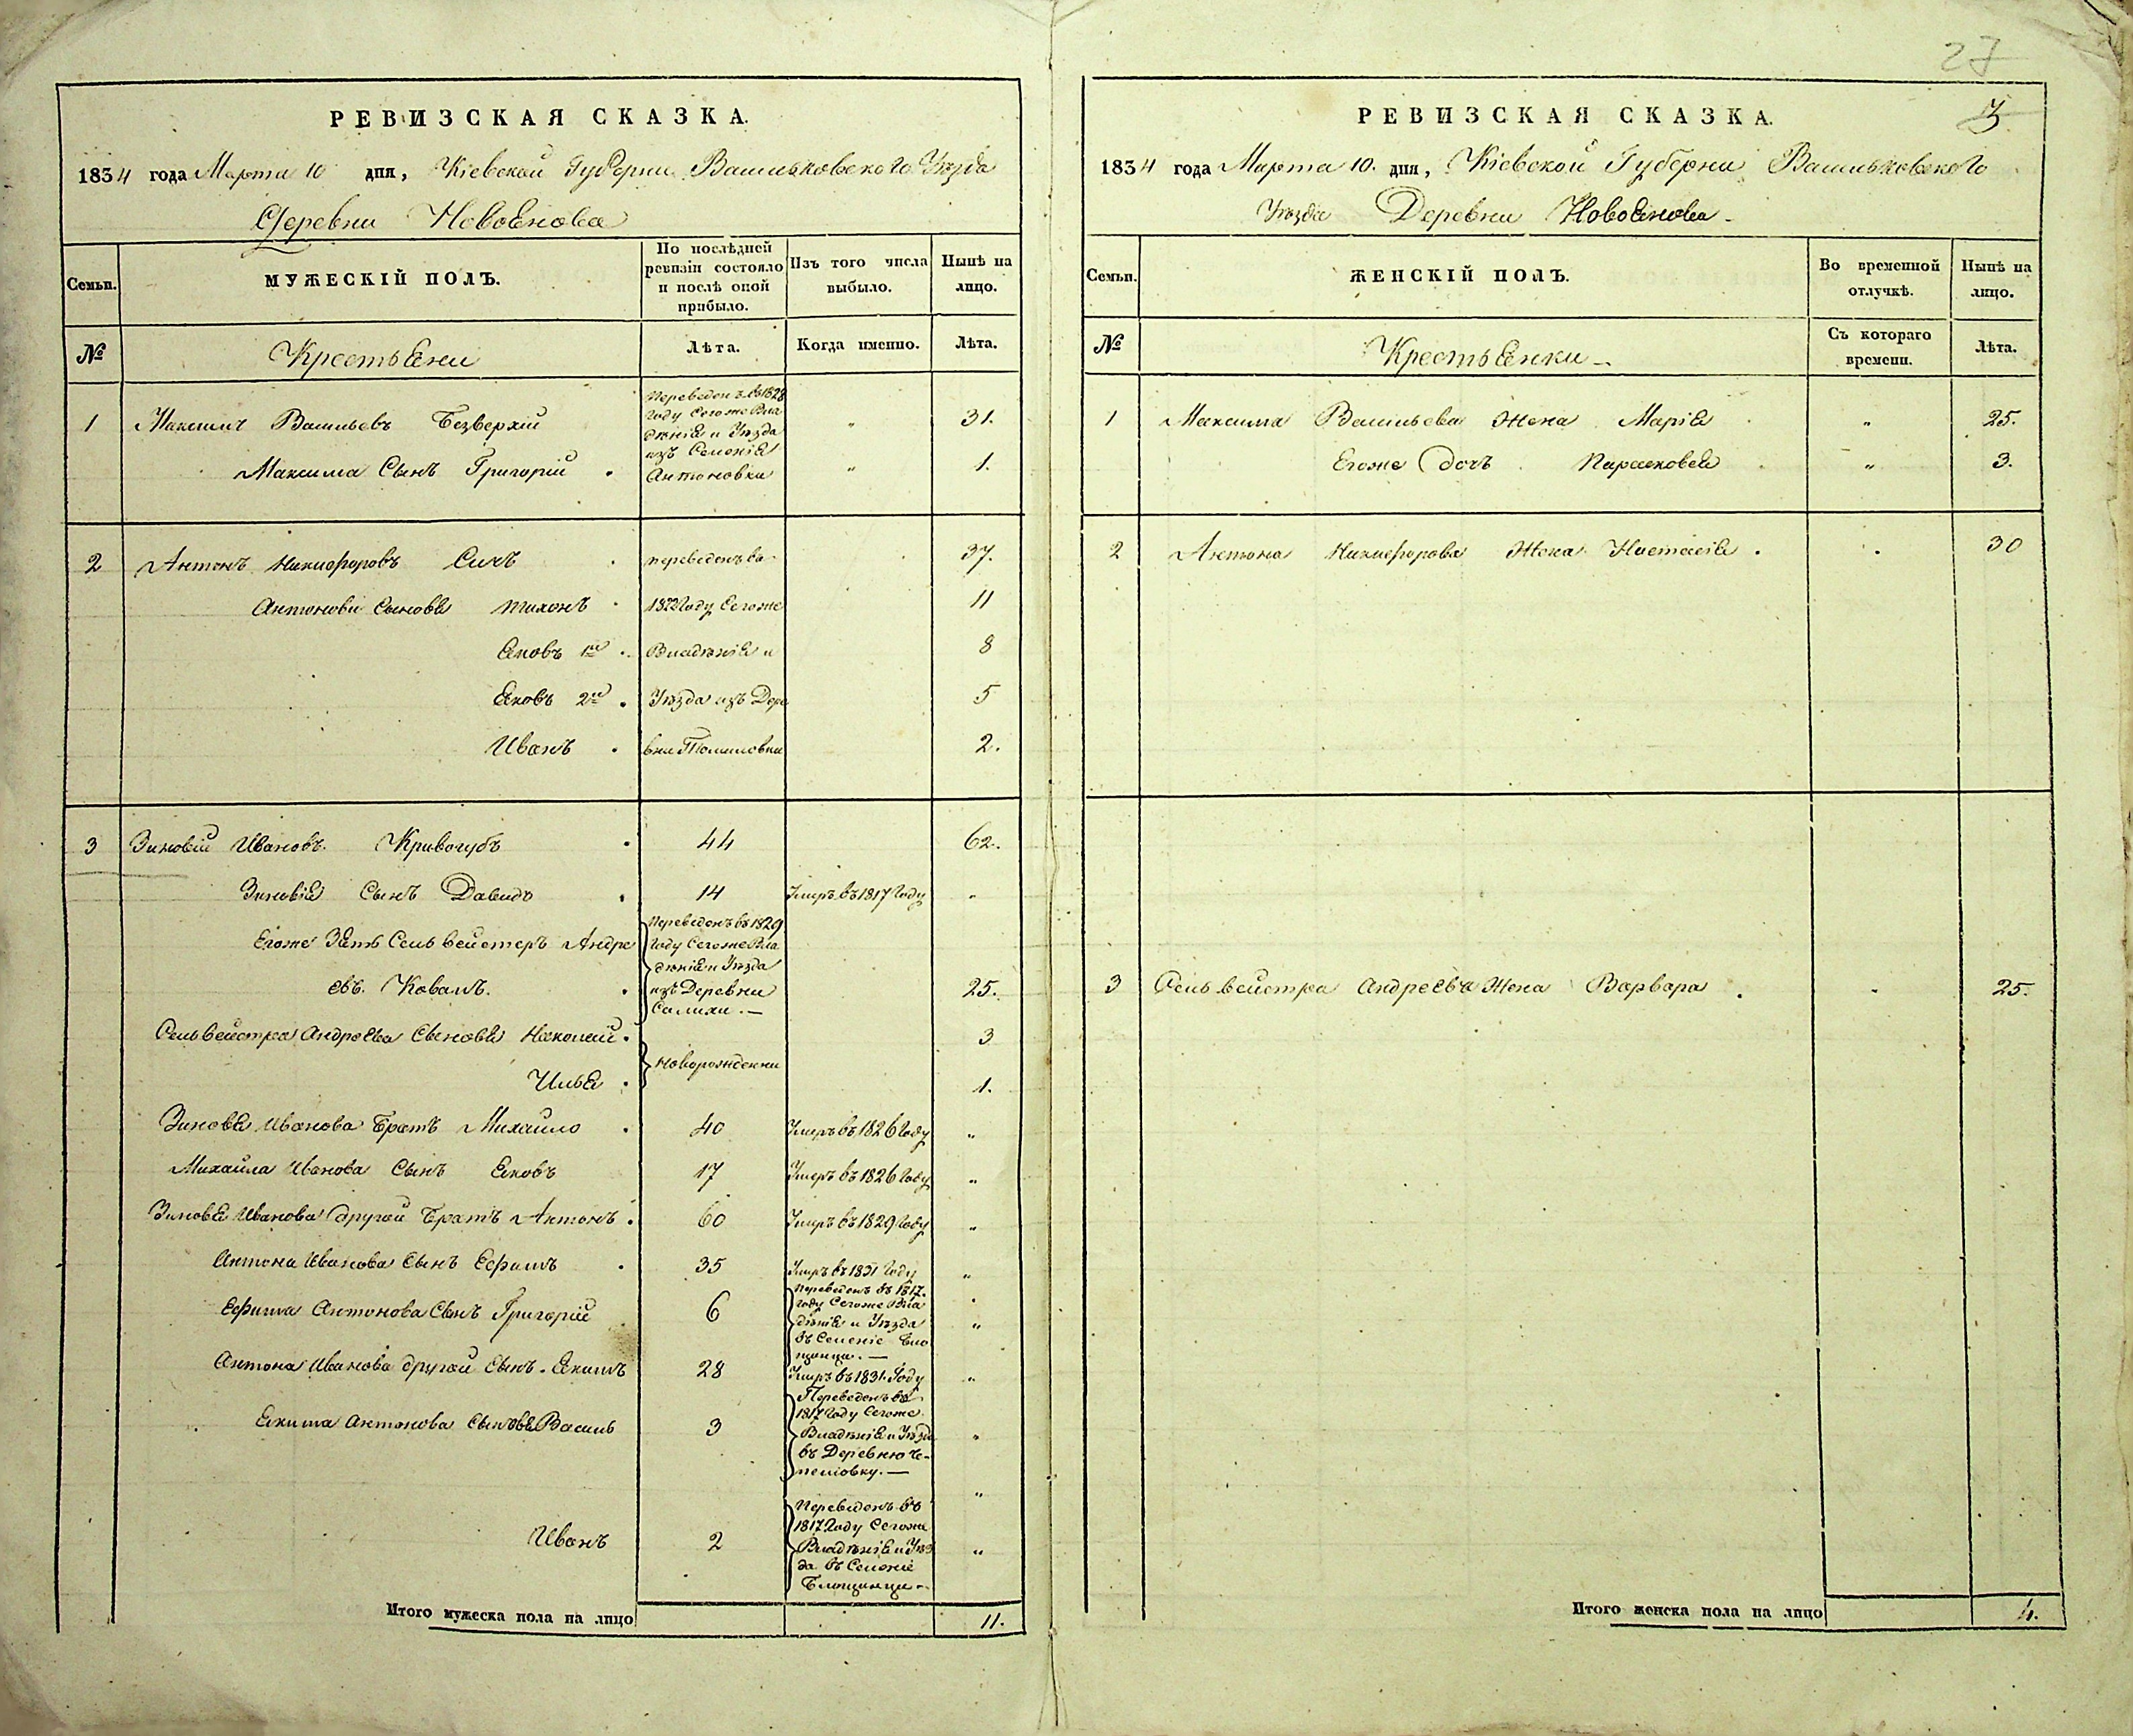 27
РЕВИЗСКАЯ СКАЗКА.
1834 года Марта 10 дня, Кіевской Губерни Васильковского Уѣзда
Деревни Новоянова
Семьи.
МУЖЕСКІЙ ПОЛЪ.
По послѣдней ревизіи состояло и послѣ оной прибыло.
Изъ того числа выбыло.
Нынѣ на лицо.
№
Крестьяни
Лѣта.
Когда именно.
Лѣта.
1 Максимъ Васильевъ Безверхій
Переведенъ въ 1828
Году Сегоже Вла
дѣнія и Уѣзда
изъ Селенія
Антоновки
" 31.
Максима Сынъ Григорій " 1.
2 Антонъ Никифоровъ переведенъ во 37.
Антонови Сыновя Тихонъ 1822 Году Сегоже 11
Яковъ 1й Владѣнія и 8
Яковъ 2й Уѣзда изъ Дере 5
Иванъ вни Томиловки 2.
3 Зиновій Ивановъ Кривогубъ 44 62.
Зиновія Сынъ Давидъ 14 Умеръ въ 1817 Году "
Егоже Зять Сельвестеръ Андре
евъ Коваль. 25.
Переведенъ въ 1829
Году Сегоже Вла
дѣнія и Уѣзда
изъ Деревни
Салихи. —
Сельвестра Андреева Сыновя Наколай 3
Новорожденни
Илья 1.
Зиновя Иванова Братъ Михайло 40 Умеръ въ 1826 Году "
Михайла Иванова Сынъ Яковъ 17 Умеръ въ 1826 Году "
Зиновя Иванова другой Братъ Антонъ 60 Умеръ въ 1829 Году "
Антона Иванова Сынъ Ефимъ 35 Умеръ въ 1831 Году "
Ефима Антонова Сынъ Григорій 6
Переведенъ въ 1817.
году Сегоже Вла
дѣнія и Уѣзда
въ Селеніе Бло
щинци. —
"
Антона Иванова другой Сынъ Якимъ 28 Умеръ въ 1831 Году "
Якима Антонова Сыновя Василь 3
Переведенъ въ
1817 Году Сегоже
Владѣнія и Уѣзда
въ Деревню Че-
пелювку. —
"
Иванъ 2
Переведенъ въ
1817 Году Сегоже
Владѣнія и Уѣз
да въ Селеніе
Блощинци —
"
Итого мужеска пола на лицо 11.
РЕВИЗСКАЯ СКАЗКА.
3
1834 года Марта 10. дня, Кіевской Губерни Васильковского
Уѣзда Деревни Новоянова —
Семьи.
ЖЕНСКІЙ ПОЛЪ.
Во временной отлучкѣ.
Нынѣ на лицо.
№
Крестьянки —
Съ котораго времени.
Лѣта.
1 Максима Васильева Жена Марія " 25.
Егоже Дочъ Парасковея " 3.
2 Антона Никифорова Жена Настасія " 30
3 Сельвестра Андреева Жена Варвара " 25.
Итого женска пола на лицо 4.